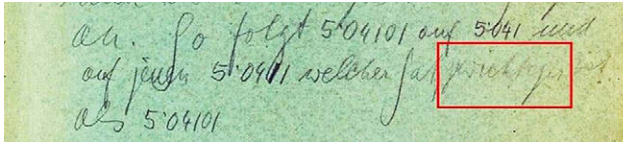 an. So folgt 5'04101 auf 5'041 und
auf jenen 5'0411 welcher Satz wichtiger ist
als 5'04101